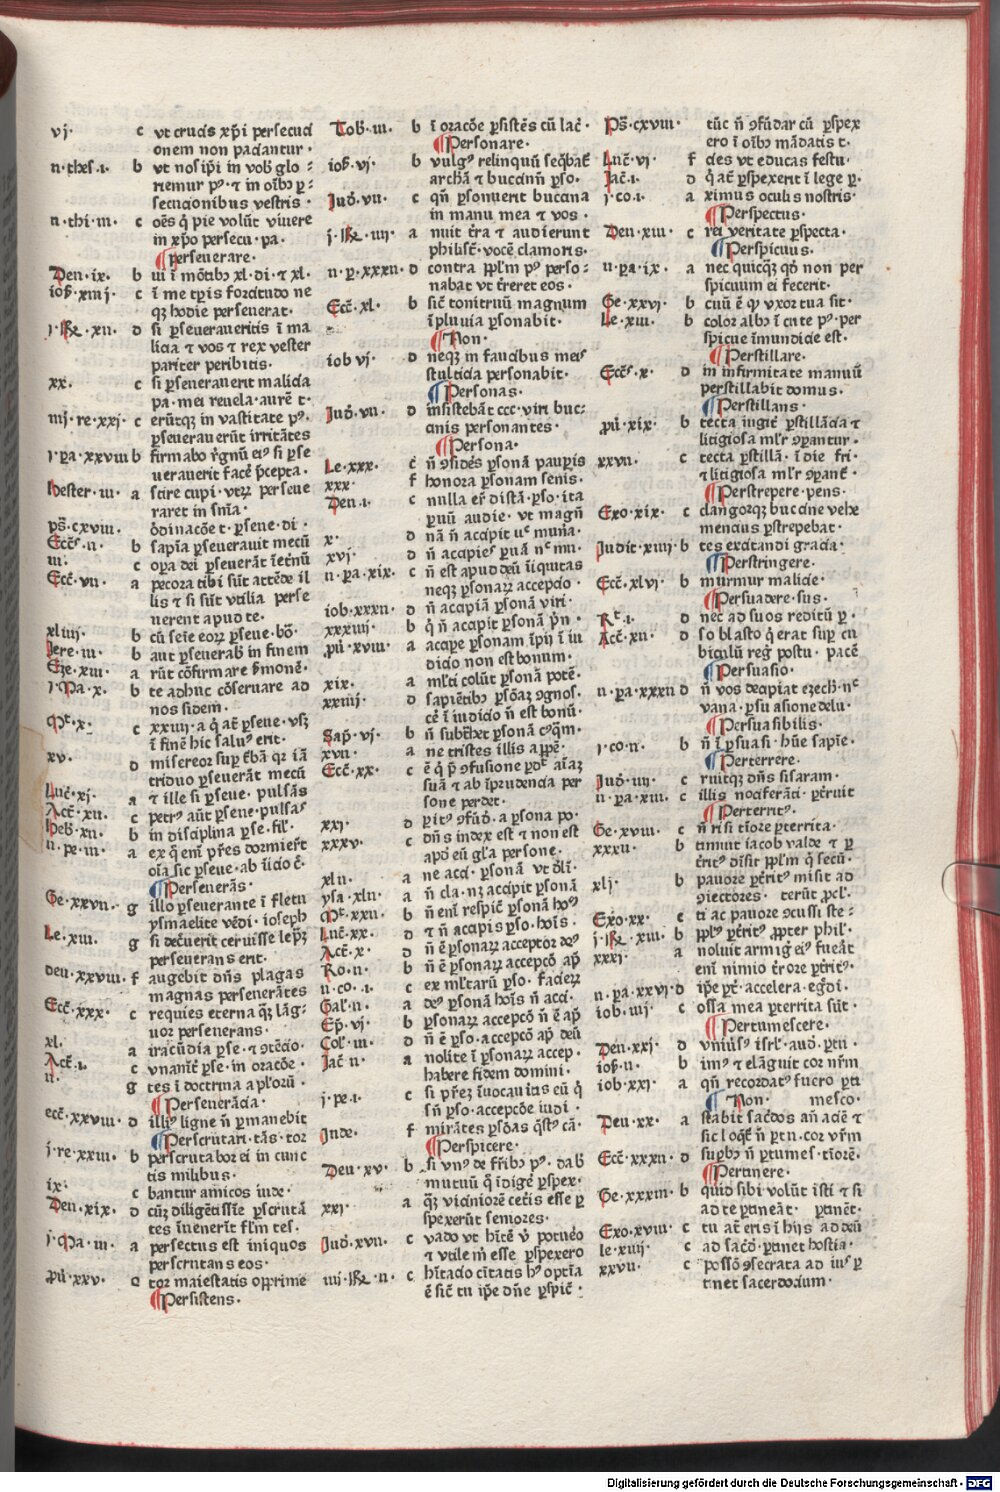 vj· c vt crucis xp̄i persecuci
onem non paciantur·
n·thes·i· b vt nosip̄i in vob̄ glo-
riemur pꝰ· ⁊ in oībꝫ ꝑ-
secucionibus vestris·
n·thi·m· c oēs q̄ pie volūt viuere
in xp̄o persecu·pa·
¶perseuerare·
Den·ix· b ui ī mōtibꝫ xl·di·⁊ xl·
iob̄·xxvij· c ī me tp̄is forcitudo ne
qꝫ hodie perseuerat·
j·R̄e·xii· d si ꝑseueraueritis ī ma
licia ⁊ vos ⁊ rex vester
pariter peribitis·
xx· c si ꝑseuerauerit malicia
pa·mei reuela·aurē t·
iiij·re·xxj· c erūtqꝫ in vastitate pꝰ·
ꝑseuerauerūt irritātes
j·pa·xxviii b firmabo r̄gnū eiꝰ si ꝑse
uerauerit facē p̄cepta·
Hester·iii· a scire cupi·vtꝝ perseue
raret in sn̄ia·
ps̄·cxviii· ōdinacōe t·ꝑseue·di·
Ecc̄s·ii· b sapīa ꝑseuerauit mecū
iii· c oꝑa dei ꝑseuerāt īet̄nū
Ecc̄·vii· a pecora tibi sūt attēde il
lis ⁊ si sūt vtilia perse
uerent apud te·
xliiij· b cū seīe eoꝝ ꝑseue·bō·
Jere·iii· b aut ꝑseuerab̄ in finem
Eze·xiii· a rūt cōfirmare s̄monē·
j·Ma·x· b te adhuc cōseruare ad
nos fidem·
Mt̄·x· c xxiiij·a q̄ at̄ ꝑseue·vsꝫ
ī finē hic saluꝰ erit·
xv· d misereor suꝑ t̄bā qꝛ iā
triduo ꝑseuerāt mecū
Luc̄·xj· a ⁊ ille si ꝑseue·pulsās
Act̄·xii· c petrꝰ aūt ꝑseue·pulsaˢ
Heb̄·xii· b in disciplina ꝑse·fil̄·
ii·pe·iii· a ex q̄ enī pr̄es dormier̄t
oīa sic ꝑseue·ab īicio c̄·
¶Perseuerās·
Ge·xxvii· g illo ꝑseuerante ī fletu
ysmaelite vēdi·ioseph
Le·xiii· g si dec̄uerit ceruisse lep̄ꝫ
perseuerans erit·
deu·xxviii· f augebit dn̄s plagas
magnas perseuerātes
Ecc̄·xxx· c requies eterna qꝫ lāg-
uor perseuerans·
xl· a iracūdia ꝑse·⁊ ꝯtēcio·
Act̄·i· c vnanīt̄ ꝑse·in oracōe·
ii· g tes ī doctrina apl̄orū·
¶Perseuerācia·
ecc̄·xxviii· d illiꝰ ligne n̄ ꝑmanebit
¶Perscrutari·tās·tor
j·re·xxiii· b perscrutabor ei in cunc
tis milibus·
ix· c bantur amicos iude·
Den·xix· d cūꝫ diligētissīe ꝑscrutā
tes īuenerīt flm̄ tes·
j·Ma·iii· a perfectus est iniquos
perscrutans eos·
ꝓū·xxv· e tor maiestatis opprime
¶Persistens·
Tob̄·iii· b ī oracōe ꝑsistēs cū lac̄·
¶Personare·
iob̄·vj· b vulgꝰ relinquū seq̄bāt̄
archā ⁊ buccinn̄ ꝑso·
Jud̄·vii· c qn̄ ꝑsonuerit buccina
in manu mea ⁊ vos·
j·R̄e·iiij· a nuit t̄ra ⁊ audierunt
philist̄·vocē clamoris·
ii·p·xxxii· d contra pp̄lm pꝰ perso-
nabat vt t̄reret eos·
Ecc̄·xl· b sic̄ tonitruū magnum
īpluuia ꝑsonabit·
¶Non·
iob vj· d neqꝫ in faucibus meiˢ
stulticia personabit·
¶Personas·
Jud̄·vii· d insistebāt ccc·viri buc-
cinis personantes·
¶Persona·
Le·xxx· c̄ n̄ ꝯsides ꝑsonā pauꝑis
xxx· f honora ꝑsonam senis·
Den·i· c nulla er̄ distā·ꝑso·ita
ꝑuū audie·vt magn̄
x· d nā n̄ accipit nᶜ muna·
xvj· d n̄ accipieˢ ꝑuā nᶜ mu·
ii·pa·xix· c n̄ est apud deū īiquitas
neqꝫ ꝑsonaꝝ accepcio·
iob·xxxii· d n̄ accipiā ꝑsonā viri·
xxxiiij· b q̄ n̄ accipit ꝑsonā p̄n·
ꝓū·xviii· a acciꝑe ꝑsonam īpij ī iu
dicio non est bonum·
xix· a ml̄ti colūt ꝑsonā potē·
xxiiij· d sapiētibꝫ ꝑsōaꝫ ꝯgnos·
cē ī iudicio n̄ est bonū·
Sap̄·vj· b n̄ subt̄het ꝑsonā cꝰq̄m·
xvii· a ne tristes illis apꝑē·
Ecc̄·xx· c ē q̄ p̄ ꝯfusione ꝑdᵗ aīaꝫ
suā ⁊ ab īprudencia per
sone perdet·
xxj· d ꝑitꝰ ꝯfūd̄·a ꝑsona po·
xxxv· c dn̄s iudex est ⁊ non est
apd̄ eū gl̄a persone·
xlii· a ne acci·ꝑsonā vt dl̄i·
ysa·xlii· a n̄ cla·nꝫ accipit ꝑsonā
Mt̄·xxii· b n̄ enī respic̄ ꝑsonā hoꝰ
Luc̄·xx· d ⁊ n̄ accipis ꝑso·hoīs·
Act̄·x· d n̄ ē ꝑsonaꝝ acceptor deꝰ
Ro·ii· b n̄ ē ꝑsonaꝝ accepcō ap̄
ii·co·i· c ex ml̄tarū ꝑso·facieꝝ
Gal̄·ii· a deꝰ ꝑsonā hoīs n̄ acci·
Ep̄·vj· b ꝑsonaꝝ accepcō n̄ ē ap̄
Col̄·iii· d n̄ ē ꝑso·accepcō ap̄ deū
Jac̄·ii· a nolite ī ꝑsonaꝝ accep·
habere fidem domini·
j·pe·i· c si pr̄eꝫ īuocatis eū q̄
sn̄ ꝑso·accepcōe iudi·
Jude· f mirātes ꝑsōas q̄stꝰ cā·
¶Perspicere·
Deu·xv· b si vnꝰ de fr̄ibꝫ pꝰ·dab̄
mutuū q̄ īdige ꝑspex·
xxj· a qꝫ viciniorē cetis esse ꝑ
spexerūt seniores·
Jud̄·xvii· c vado vt hītē v̄ potuēo
⁊ vtile m̄ esse ꝑspexero
iiij·R̄e·ii· c hītacio cītatis hꝰ optīa
ē sic̄ tu ip̄e dn̄e ꝑspic̄·
Ps̄·cxviii· tūc n̄ ꝯfūdar cū ꝑspex
ero ī oībꝫ mādatis t·
Luc̄·vj· f cies vt educas festu·
Jac̄·i· d q̄ at̄ ꝑspexerit ī lege ꝑ·
j·co·i· a ximus oculis nostris·
¶Perspectus·
Den·xiii· c rei veritate ꝑspecta·
¶Perspicuus·
ii·pa·ix· a nec quicqꝫ qō non per
spicuum ei fecerit·
Ge·xxvj· b cuū ē q̄ vxor tua sit·
Le·xiii· b color albꝫ ī cute pꝰ·per
spicue īmundicie est·
¶Perstillare·
Ecc̄s·x· d in infirmitate manuū
perstillabit domus·
¶Perstillans·
ꝓū·xix· b tecta iugit̄ ꝑstillācia ⁊
litigiosa ml̄r ꝯparantur·
xxvii· c tecta ꝑstillā·ī die fri·
⁊ litigiosa ml̄r ꝯꝑant̄·
¶Perstrepere·pens·
Exo·xix· c clangorqꝫ buccine vehe
mencius ꝑstrepebat·
Judit·xiiij· b tes excitandi gracia·
¶Perstringere·
Ecc̄·xlvj· b murmur malicie·
¶Persuadere·sus·
Rᵗ·i· d nec ad suos reditū ꝑ·
Act̄·xii· d so blasto q̄ erat suꝑ cu
biculū reḡ postu·pacē
¶Persuasio·
ii·pa·xxxii d n̄ vos decipiat ezech·nᶜ
vana·ꝑsuasione delu·
¶Persuasibilis·
j·co·ii· b n̄ ī ꝑsuasi·hūe sapīe·
¶Perterrere·
Jud̄·iiij· c ruitqꝫ dn̄s sisaram·
ii·pa·xiii· c illis nociferāti·ꝑt̄ruit
¶Perterritꝰ·
Ge·xviii· c n̄ risi tīore ꝑterrita·
xxxii· b timuit iacob valde ⁊ ꝑ
t̄ritꝰ diusit pp̄lm q̄ secū·
xlj· b pauore ꝑt̄ritꝰ misit ad
ꝯiectores· terūt ꝓcl̄·
Exo·xx· e ti ac pauore ꝯcussi ste-
j·R̄e·xiii· b pp̄lꝰ ꝑt̄ritꝰ·ꝓpter phil̄·
xxxj· a noluit armiḡ eiꝰ fueāt
enī nimio t̄rore ꝑt̄ritꝰ·
ii·pa·xxvj· d ip̄e ꝑt̄·accelera·eḡdi·
iob·iiij· c ossa mea ꝑterrita sūt·
¶Pertumescere·
Den·xxj· d vniūsꝰ isrl̄·aud̄·ꝑtii·
iob̄·ii· b imꝰ ⁊ elāguit cor nr̄m
iob·xxj· a qn̄ recordatꝰ fuero ꝑti
¶Non· mesco·
Deu·xx· a stabit sac̄dos an̄ aciē ⁊
sic loq̄t̄ n̄ ꝑtu·cor vr̄m
Ecc̄·xxxii· d suꝑbꝫ n̄ ꝑtumes·tīorē·
¶Pertinere·
Ge·xxxiii· b quid sibi volūt isti ⁊ si
ad te ꝑtineāt· ꝑtinēt·
Exo·xviii· c tu at̄ eris ī hijs ad deū
le·xiiij· c ad sac̄d̄·ꝑtinet hostia·
xxvii· c possō ꝯsecrata ad iuˢ ꝑ
tinet sacerdocium·
Digitalisierung gefördert durch die Deutsche Forschungsgemeinschaft - DFG